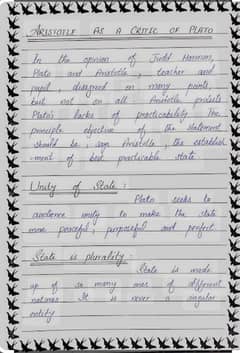 ARISTOTLE AS A CRITIC OF PLATO
In the opinion of Judd Harmon,
Plato and Aristotle, teacher and
pupil, disagreed on many points
but not on all. Aristotle
Plato's lacks of practicability. The
principle objective of the statement
should be, says Aristotle, the establish
-ment of best practicable state.
Unity of State:
Plato seeks to
achieve unity to make the state
more peaceful, purposeful and perfect.
State is plurality:
State is made
up of so many men of different
natures. It is never a singular
entity